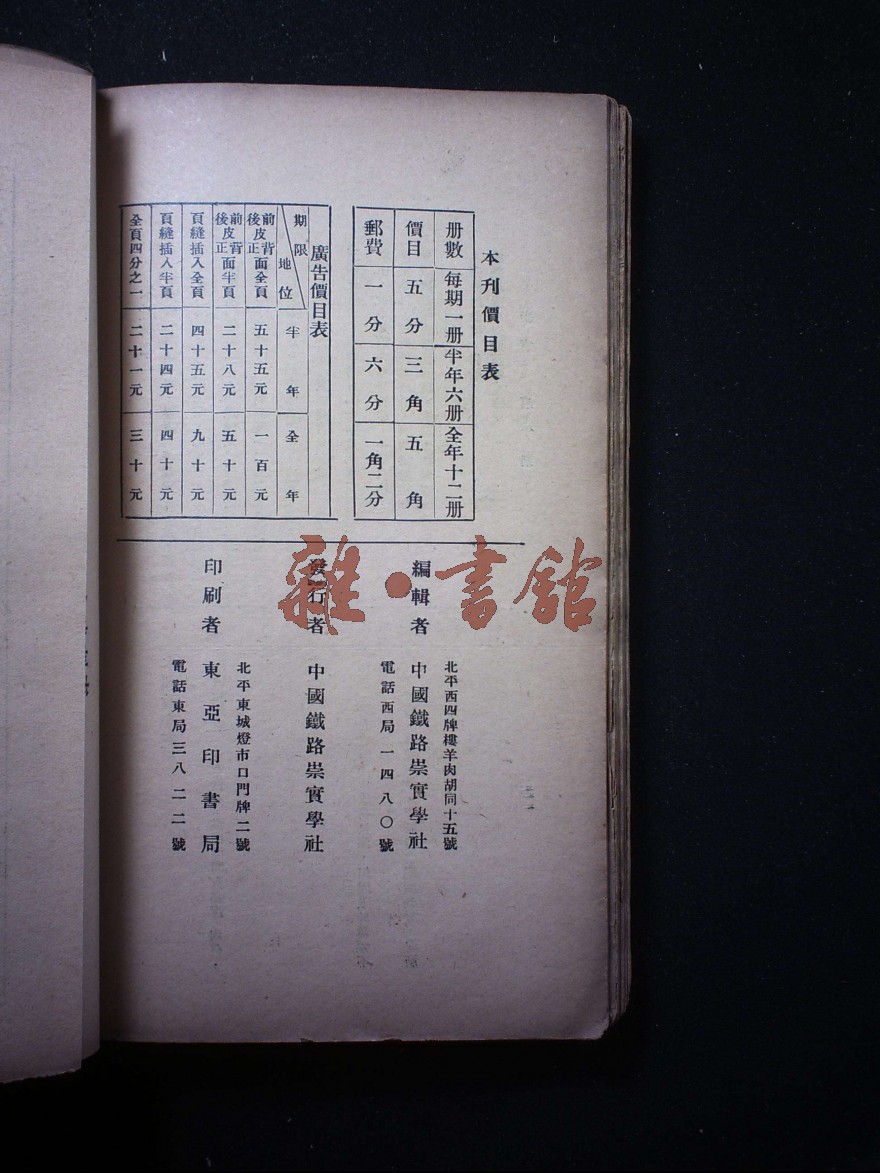 本刊價目表
册數 每期一册 半年六册 全年十二册
價目 五分 三角 五角
郵費 一分 六分 一角二分
廣告價目表
期限 地位 半年 全年
前皮背面 後皮正面 全頁 五十五元 一百元
前皮背面 後皮正面 半頁 二十八元 五十元
頁縫插入全頁 四十五元 九十元
頁縫插入半頁 二十四元 四十元
全頁四分之一 二十一元 三十元
北平西四牌樓羊肉胡同十五號
編輯者 中國鐵路崇實學社
電話西局一四八〇號
發行者 中國鐵路崇實學社
北平東城燈市口門牌二號
印刷者 東亞印書局
電話東局三八二二號
雜·書館